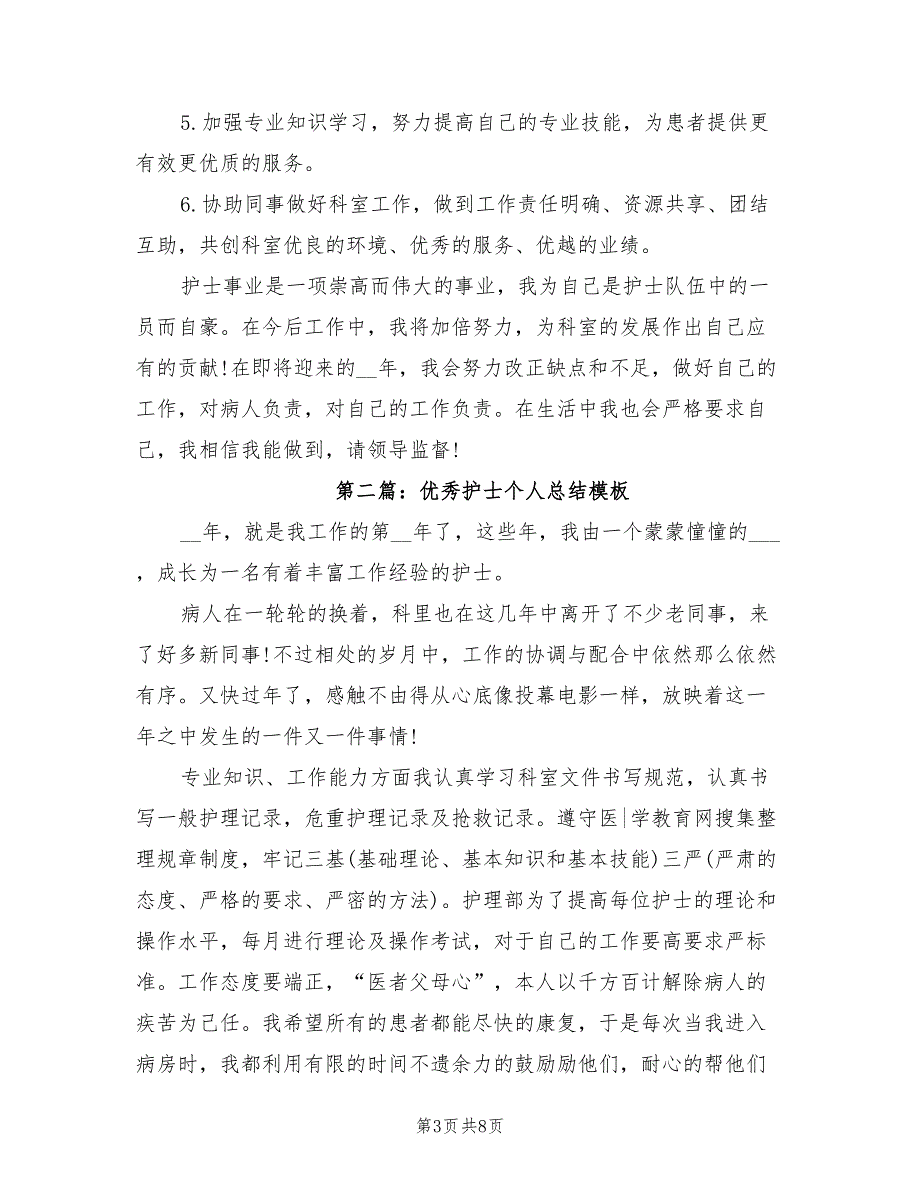 5.加强专业知识学习，努力提高自己的专业技能，为患者提供更
有效更优质的服务。
6.协助同事做好科室工作，做到工作责任明确、资源共享、团结
互助，共创科室优良的环境、优秀的服务、优越的业绩。
护士事业是一项崇高而伟大的事业，我为自己是护士队伍中的一
员而自豪。在今后工作中，我将加倍努力，为科室的发展作出自己应
有的贡献!在即将迎来的__年，我会努力改正缺点和不足，做好自己的
工作，对病人负责，对自己的工作负责。在生活中我也会严格要求自
己，我相信我能做到，请领导监督!
第二篇：优秀护士个人总结模板
__年，就是我工作的第__年了，这些年，我由一个蒙蒙憧憧的___
，成长为一名有着丰富工作经验的护士。
病人在一轮轮的换着，科里也在这几年中离开了不少老同事，来
了好多新同事!不过相处的岁月中，工作的协调与配合中依然那么依然
有序。又快过年了，感触不由得从心底像投幕电影一样，放映着这一
年之中发生的一件又一件事情!
专业知识、工作能力方面我认真学习科室文件书写规范，认真书
写一般护理记录，危重护理记录及抢救记录。遵守医|学教育网搜集整
理规章制度，牢记三基(基础理论、基本知识和基本技能)三严(严肃的
态度、严格的要求、严密的方法)。护理部为了提高每位护士的理论和
操作水平，每月进行理论及操作考试，对于自己的工作要高要求严标
准。工作态度要端正，“医者父母心”，本人以千方百计解除病人的
疾苦为己任。我希望所有的患者都能尽快的康复，于是每次当我进入
病房时，我都利用有限的时间不遗余力的鼓励励他们，耐心的帮他们
第3页 共8页